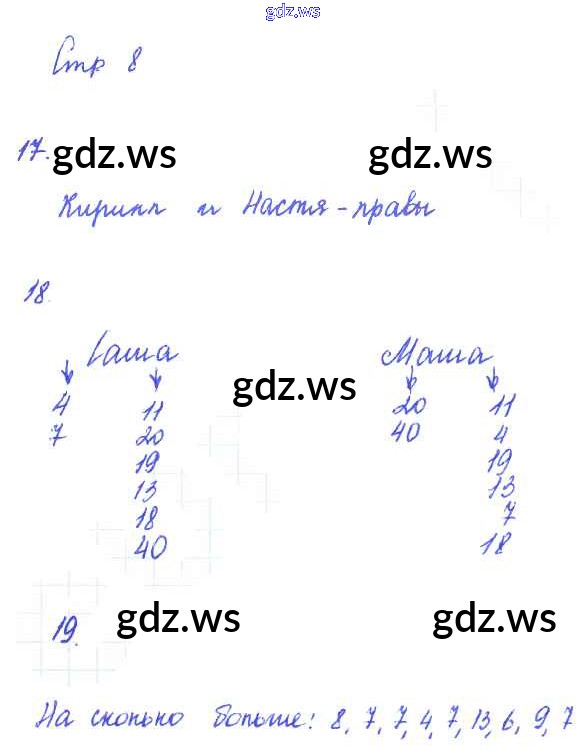 gdz.ws
Стр 8
17. gdz.ws gdz.ws
Кирилл и Настя-правы
18.
Саша Маша
gdz.ws
4 11 20 11
7 20 40 4
19 19
13 13
18 7
40 18
19. gdz.ws gdz.ws
На сколько больше: 8, 7, 7, 4, 7, 13, 6, 9, 7